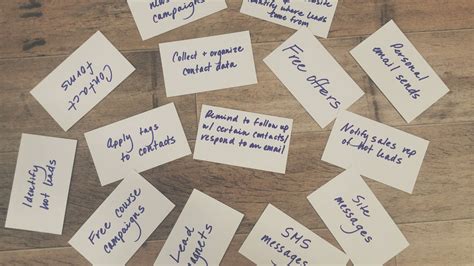 campaigns
identify where leads
come from
Contact
Forms
Collect + organize
contact data
Free offers
Personal
email sends
Apply tags
to contacts
Remind to follow up
w/ certain contacts/
respond to an email
Notify sales rep
of hot leads
Identify
hot leads
Free course
campaigns
Lead
magnets
SMS
messages
Site
messages